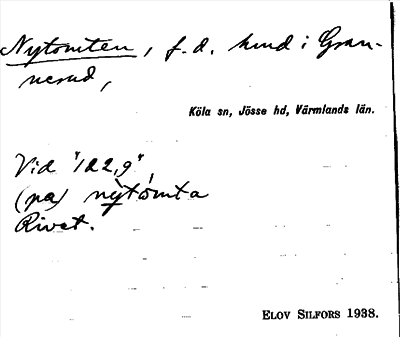 Nytomten, f.d. hmd i Gran-
nerud,
Köla sn, Jösse hd, Värmlands län.
Vid "122,9"
(på) nỳtòmta
Rivet.
ELOV SILFORS 1938.